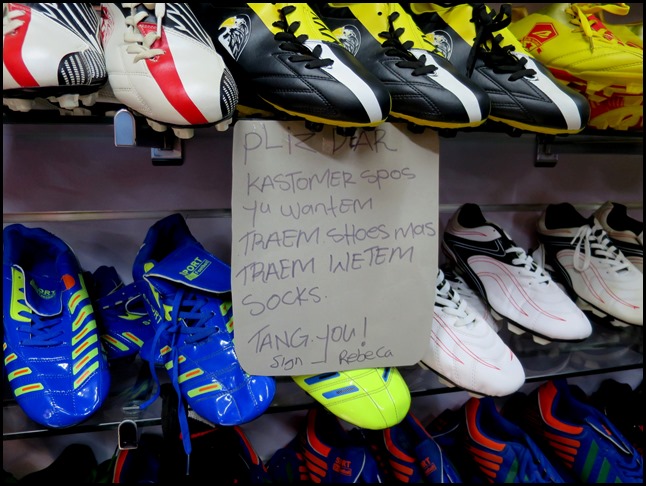 PLIZ DEAR
KASTOMER SPOS
YU WANTEM
TRAEM SHOES MAS
TRAEM WETEM
SOCKS.
TANG.YOU!
Sign _ Rebeca
SPORT